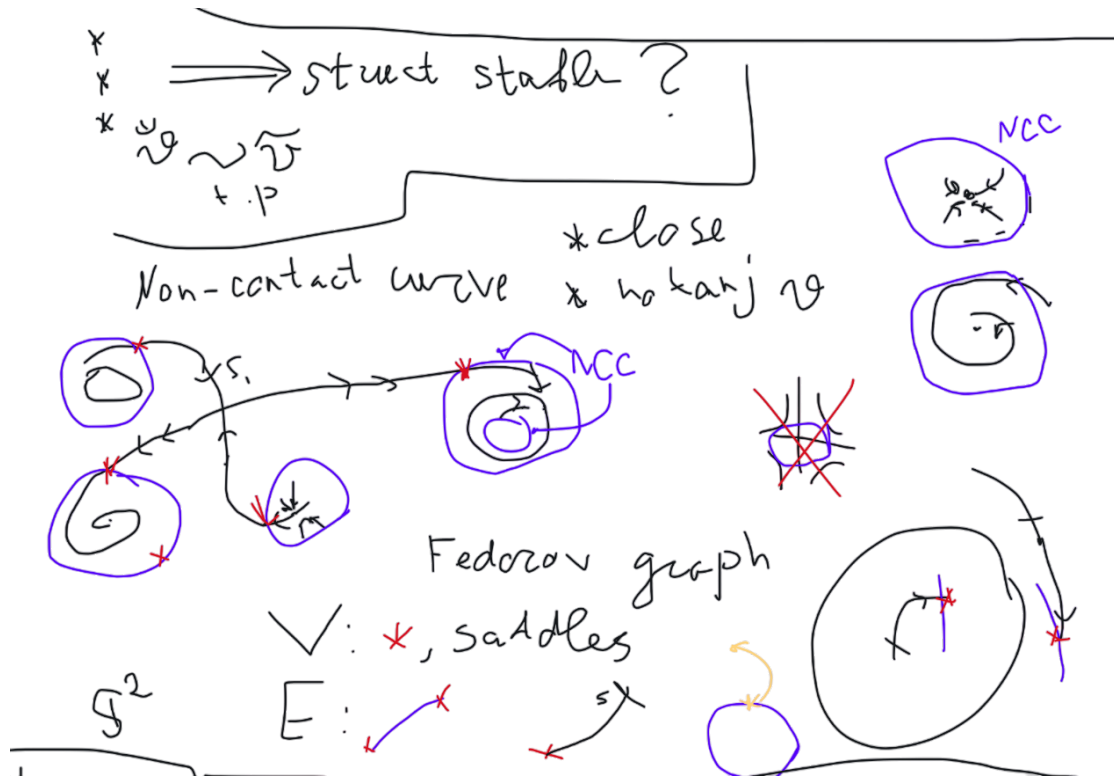 * 
*
* ⟹ struct stable ?
ṽ ~ ṽ
t.p
NCC
* close
Non-contact curve * no tanj v
S₁
NCC
Fedorov graph
V: *, saddles
S²
E: s